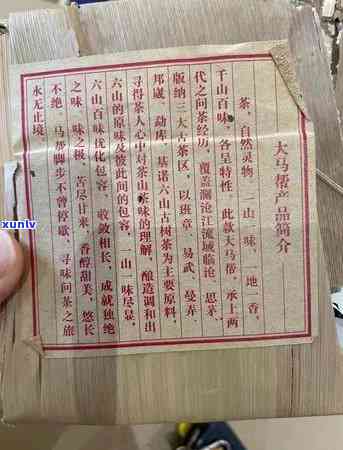 大马帮产品简介
茶，自然灵物，一山一味，一地一香，
千山百味，各呈特性。此款大马帮，承上两
代之问茶经历，覆盖澜沧江流域临沧、思茅、
版纳三大古茶区，以班章、易武、曼弄、
邦崴、勐库、基诺六山古树茶为主要原料，
寻得茶人心中对茶山茶味的理解，酿造调和出
六山的原味及彼此间的包容，一山一味尽显，
六山百味优化包容，收敛相长，成就独绝
之味，味之极，苦尽甘来，香醇甜美，悠长
不绝。马帮脚步不曾停歇，寻味问茶之旅
永无止境
xunlv